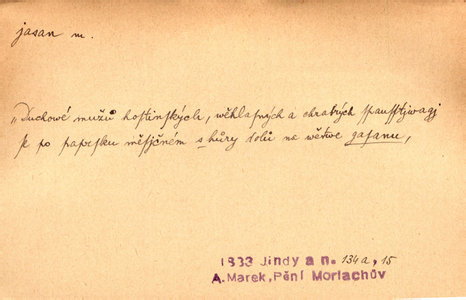 jasan m.
„Duchowé mužů hostinských, wěhlasných a chrabrých spausstějí
se po paprsku měsíčném s hůry dolů na wětwe gasanu,
1833 Jindy a n. 134a, 15
A. Marek, Pění Morlachův